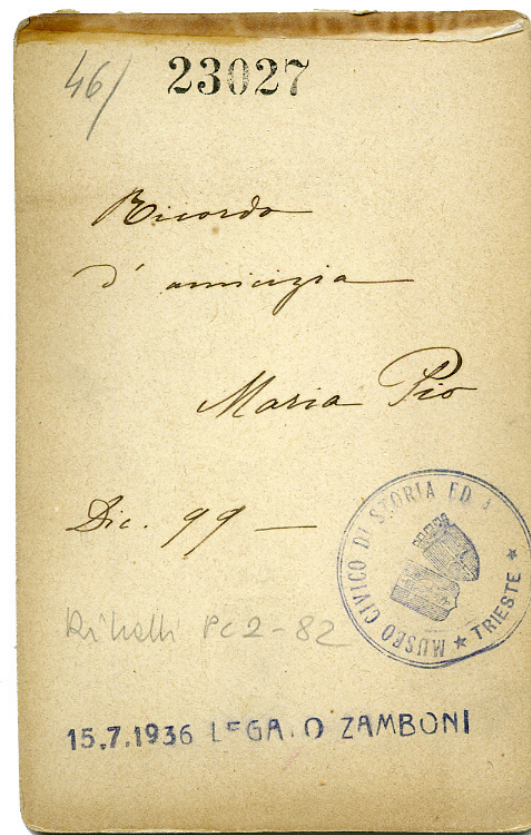 46/ 23027
Ricordo
d' amicizia
Maria Pio
Dic. 99 —
MUSEO CIVICO DI STORIA ED A
TRIESTE
Pc 2-82
15.7.1936 LEGA.O ZAMBONI